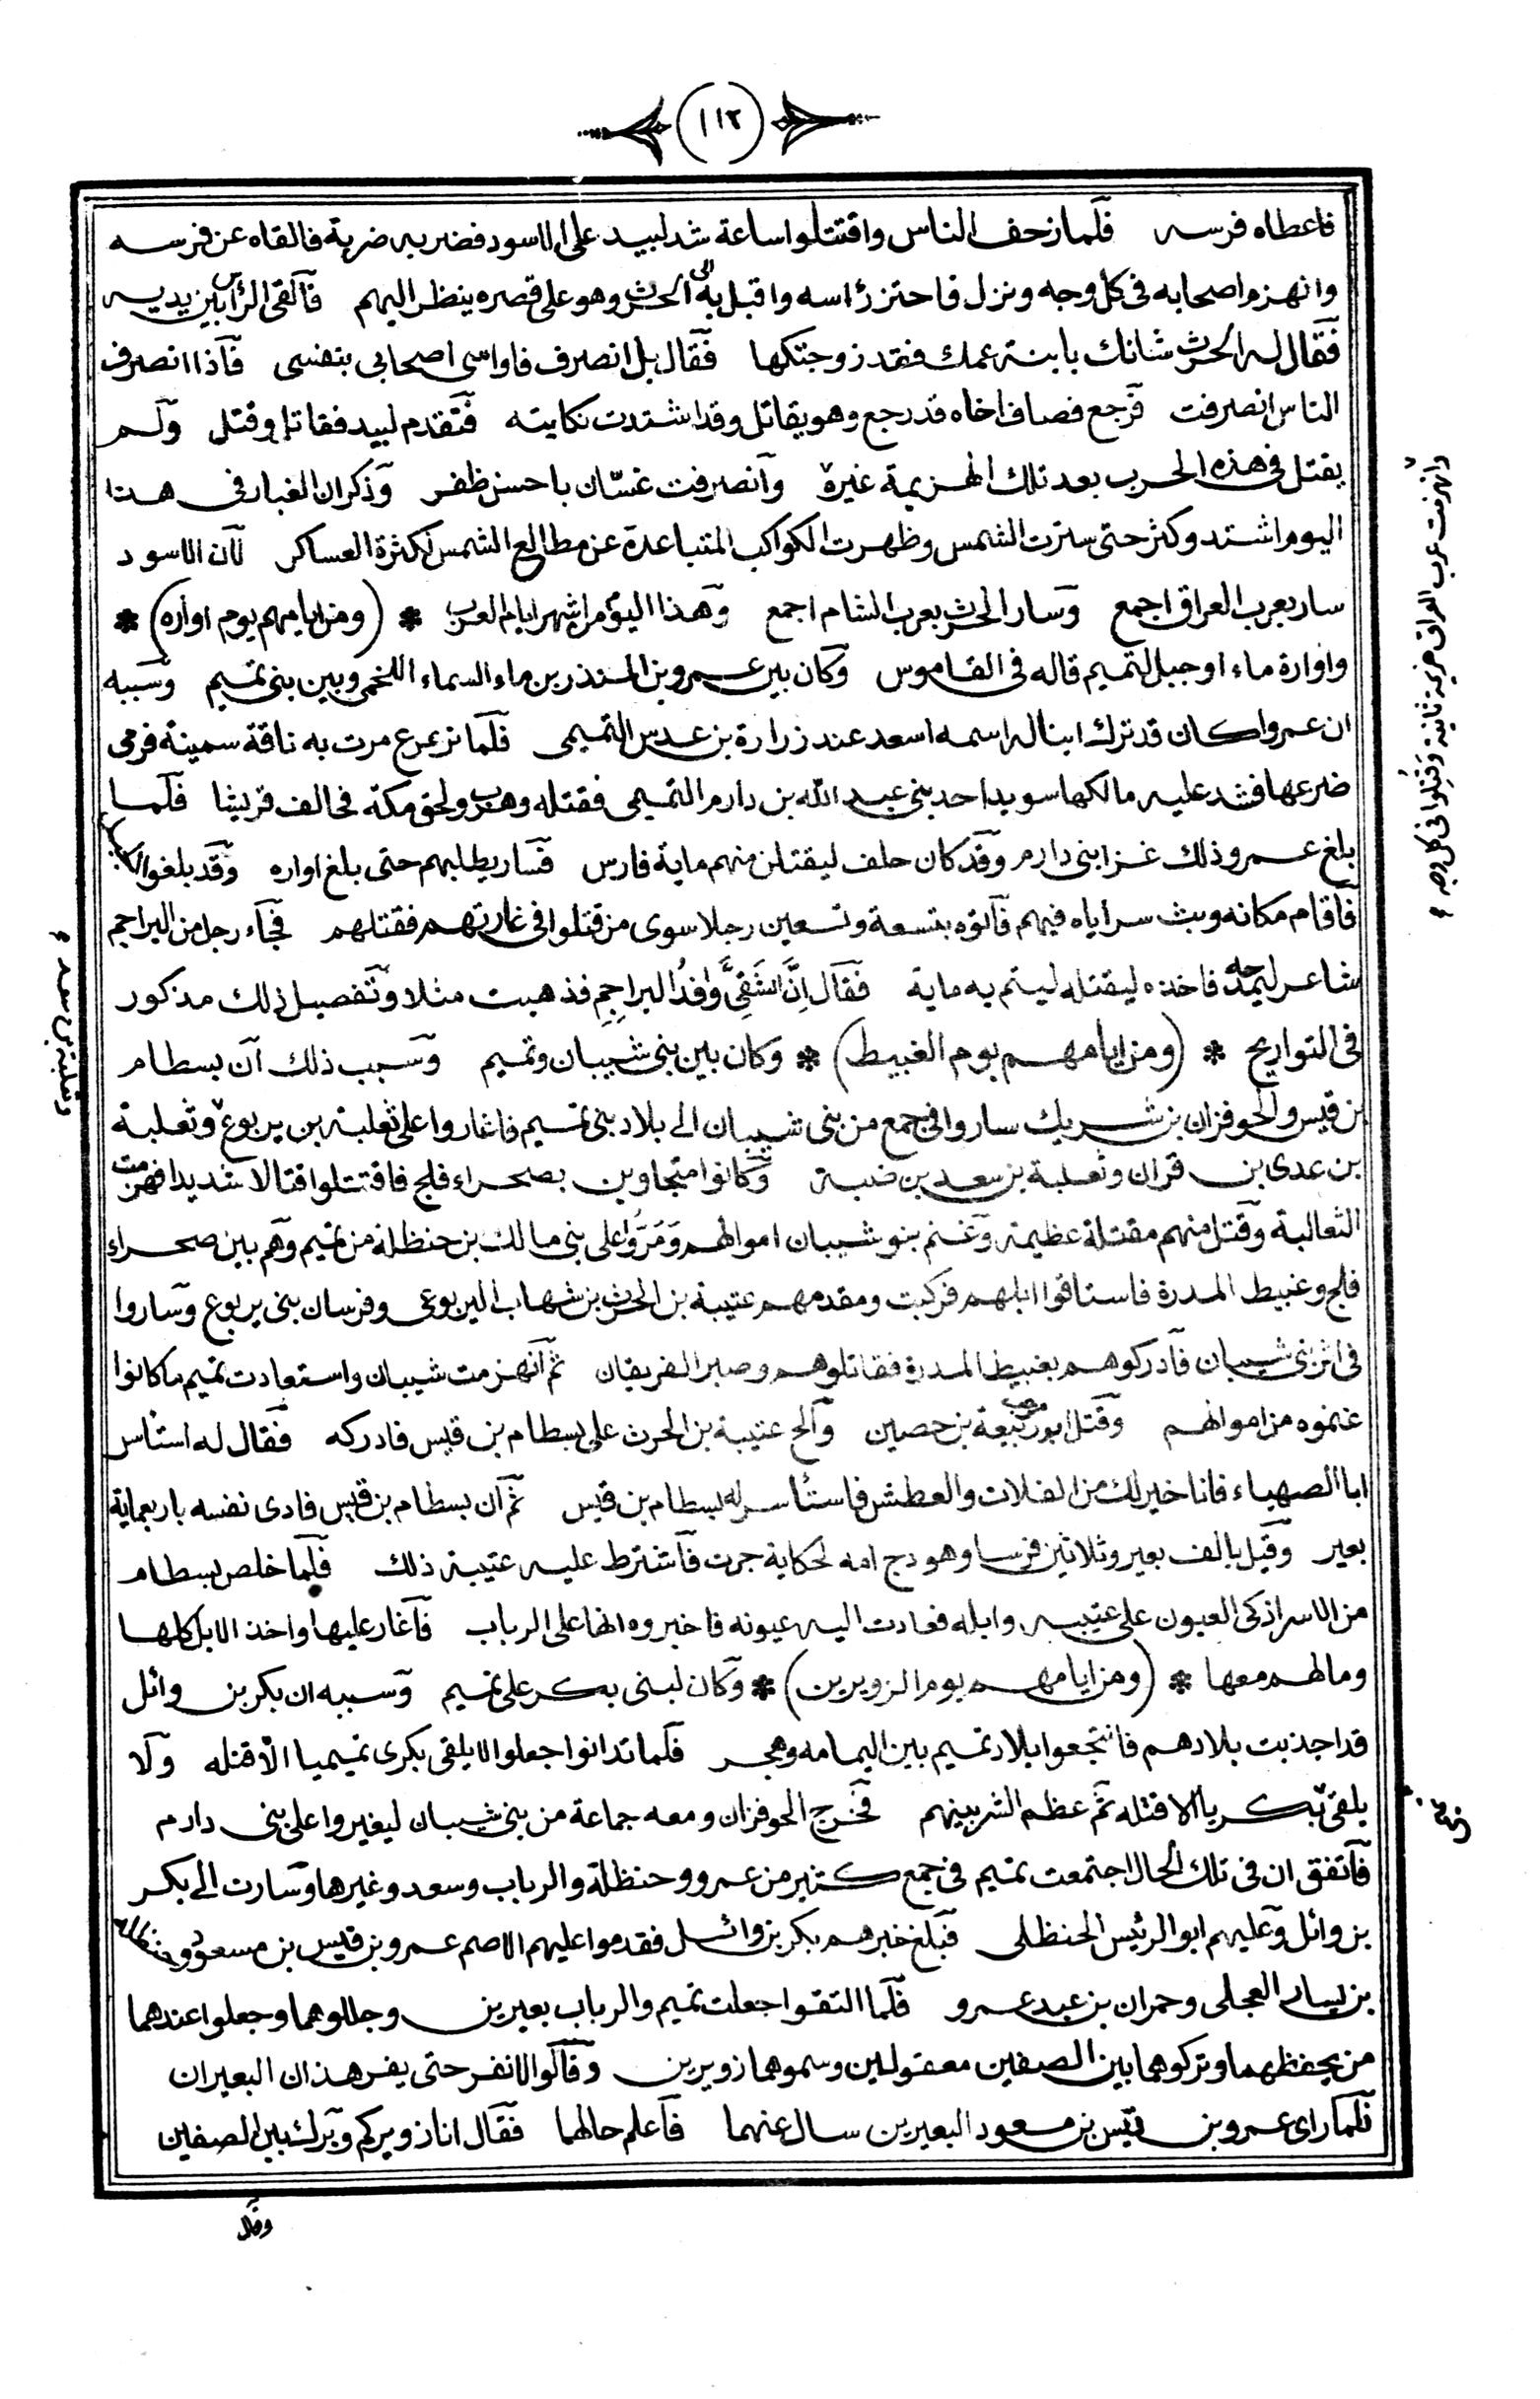 (١١٢)
فاعطاه فرسه فلما زحف الناس واقتتلوا ساعة شد لبيد على الاسود فضربه ضربة فالقاه عن فرسه
وانهزم اصحابه فى كل وجه ونزل فاحتز رٔاسه واقبل به الى الحرث وهو على قصره ينظر اليهم فالقى الرٔاس بين يديه
فقال له الحرث شانك بابنة عمك فقد زوجتكها فقال بل انصرف فاواسى اصحابى بنفسى فاذا انصرف
الناس انصرفت فرجع فصاف اخاه قد رجع وهو يقاتل وقد اشتدت نكايته فتقدم لبيد فقاتل وقتل ولم
يقتل فى هذه الحرب بعد تلك الهزيمة غيره وانصرفت غسّان باحسن ظفر وذكر ان الغبار فى هذا
اليوم اشتد وكثر حتى سترت الشمس وظهرت الكواكب المتباعدة عن مطالع الشمس لكثرة العساكر لان الاسود
سار بعرب العراق اجمع وسار الحرث بعرب الشام اجمع وهذا اليوم من اشهر ايام العرب * (ومن ايامهم يوم اواره) *
واوارة ماء او جبل لتميم قاله فى القاموس وكان بين عمرو بن المنذر بن ماء السماء اللخمى وبين بنى تميم وسببه
ان عمروا كان قد ترك ابنا له اسمه اسعد عند زرارة بن عدس التميمى فلما ترعرع مرت به ناقة سمينة فرمى
ضرعها فشد عليه مالكها سويد احد بنى عبد الله بن دارم التميمى فقتله وهرب ولحق مكة فحالف قريشا فلما
بلغ عمرو ذلك غزا بنى دارم وقد كان حلف ليقتلن منهم ماية فارس فسار يطلبهم حتى بلغ اواره وقد بلغوا
فاقام مكانه وبث سراياه فيهم فاتوه بتسعة وتسعين رجلا سوى من قتلوا فى غارتهم فقتلهم فجاء رجل من البراجم
شاعر ليمدحه فاخذه ليقتله ليتم به ماية فقال اِنَّ الشَقِىَّ وَافِدُ البراجِمِ فذهبت مثلا وتفصيل ذلك مذكور
فى التواريخ * (ومن ايامهم يوم الغبيط) * وكان بين بنى شيبان وتميم وسبب ذلك ان بسطام
بن قيس والحوفزان بن شريك ساروا فى جمع من بنى شيبان الى بلاد بنى تميم فاغاروا على ثعلبة بن يربوع وثعلبة
بن عدى بن قران وثعلبة بن سعد بن ضبة وكانوا متجاوين بصحراء فلج فاقتتلوا قتالا شديدا فهزمت
الثعالبة وقتل منهم مقتلة عظيمة وغنم بنو شيبان اموالهم وَمَرُّوا على بنى مالك بن حنظلة من تميم وهم بين صحراء
فلج وغبيط المدرة فاستاقوا ابلهم فركبت ومقدمهم عتيبة بن الحرث بن شهاب اليربوعى وفرسان بنى يربوع وساروا
فى اثر بنى شيبان فادركوهم بغبيط المدرة فقاتلوهم وصبر الفريقان ثم انهزمت شيبان واستعادت تميم ما كانوا
غنموه من اموالهم وقتل ابو مرحب ربيعة بن حصين والح عتيبة بن الحرث على بسطام بن قيس فادركه فقال له استٔاسر
ابا الصهباء فانا خير لك من الفلات والعطش فاستٔاسر له بسطام بن قيس ثم ان بسطام بن قيس فادى نفسه باربعماية
بعير وقيل بالف بعير وثلاثين فرسا وهودج امه لحكاية جرت فاشترط عليه عتيبة ذلك فلما خلص بسطام
من الاسر اذكى العيون على عتيبه وابله فعادت اليه عيونه فاخبروه انها على الرباب فاغار عليها واخذ الابل كلها
وما لهم معها * (ومن ايامهم يوم الزويرين) * وكان لبنى بكر على تميم وسببه ان بكر بن وائل
قد اجذبت بلادهم فانتجعوا بلاد تميم بين اليمامه وهجر فلما تدانوا جعلوا لا يلقى بكرى تميميا الا قتله ولا
يلقى بكريا الا قتله ثم عظم الشر بينهم فخرج الحوفزان ومعه جماعة من بنى شيبان ليغيروا على بنى دارم
فاتفق ان فى تلك الحال اجتمعت تميم فى جمع كثير من عمرو وحنظلة والرباب وسعد وغيرها وسارت الى بكر
بن وائل وعليهم ابو الرئيس الحنظلى فبلغ خبرهم بكر بن وائل فقدموا عليهم الاصم عمرو بن قيس بن مسعود وحنظلة
بن يسار العجلى وحمران بن عبد عمرو فلما التقوا جعلت تميم والرباب بعيرين وجللوهما وجعلوا عندهما
من يحفظهما وتركوهما بين الصفين معقولين وسموهما زويرين وقالوا لا نفر حتى يفر هذان البعيران
فلما راى عمرو بن قيس بن مسعود البعيرين سال عنهما فاعلم حالهما فقال انا زويركم وبرك بين الصفين
وقال
وانهزمت عرب العراق هزيمة ثانية وَقُتِلُوا فى كل وجه
وثعلبة بن سعد
تميمى